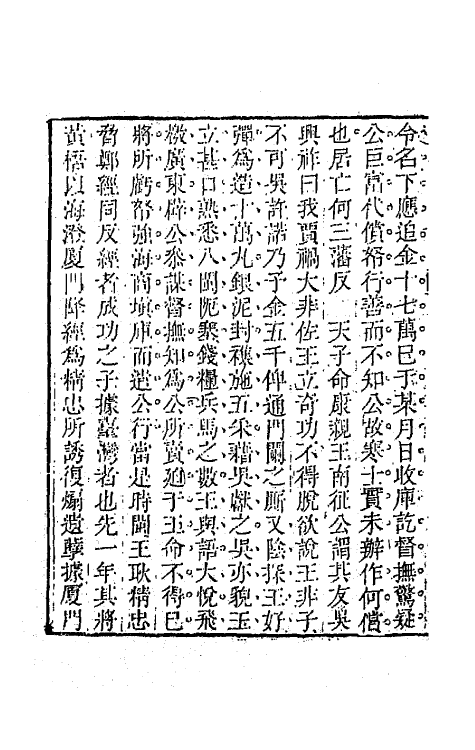 令名下應追金十七萬已于某月日收庫訖督撫驚疑
公巨富代償將行善而不知公故寒士實未辦作何償
也居亡何三藩反　天子命康親王南征公謂其友吳
興祚曰我賈禍大非佐王立奇功不得脫欲說王非子
不可吳許諾乃予金五千俾通門闌之厮又陰探王好
彈爲造十萬丸銀泥封裹施五采藉吳獻之吳亦貌玉
立甚口熟悉八閩阨塞錢糧兵馬之數王與語大悅飛
檄廣東辟公參謀督撫知爲公所賣廹于王命不得已
將所虧帑強海商塡庫而遣公行當是時閩王耿精忠
脅鄭經同反經者成功之子據臺灣者也先一年其將
黃梧以海澄厦門降經爲精忠所誘復煽遺孽據厦門